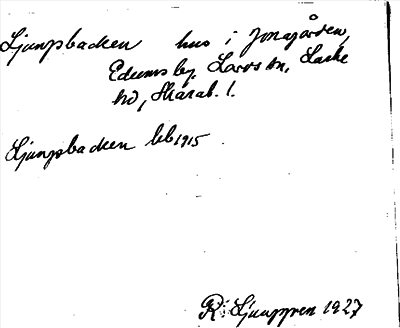 Ljungsbacken hus i Jonsgården,
Edums by, Larvs sn, Laske
hd, Skarab. l.
Ljungsbacken kb 1915
R. Ljunggren 1927